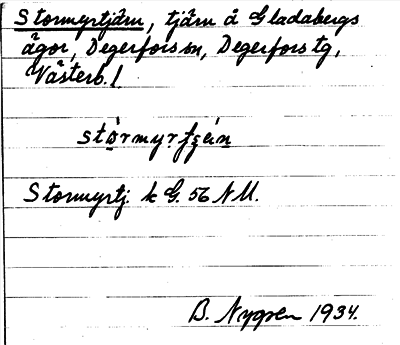 Stormyrtjärn, tjärn å Gladabergs
ägor, Degerfors sn, Degerfors tg,
Västerb. l
Stormyrtj. k G. 56 NU.
B. Nygren 1934.